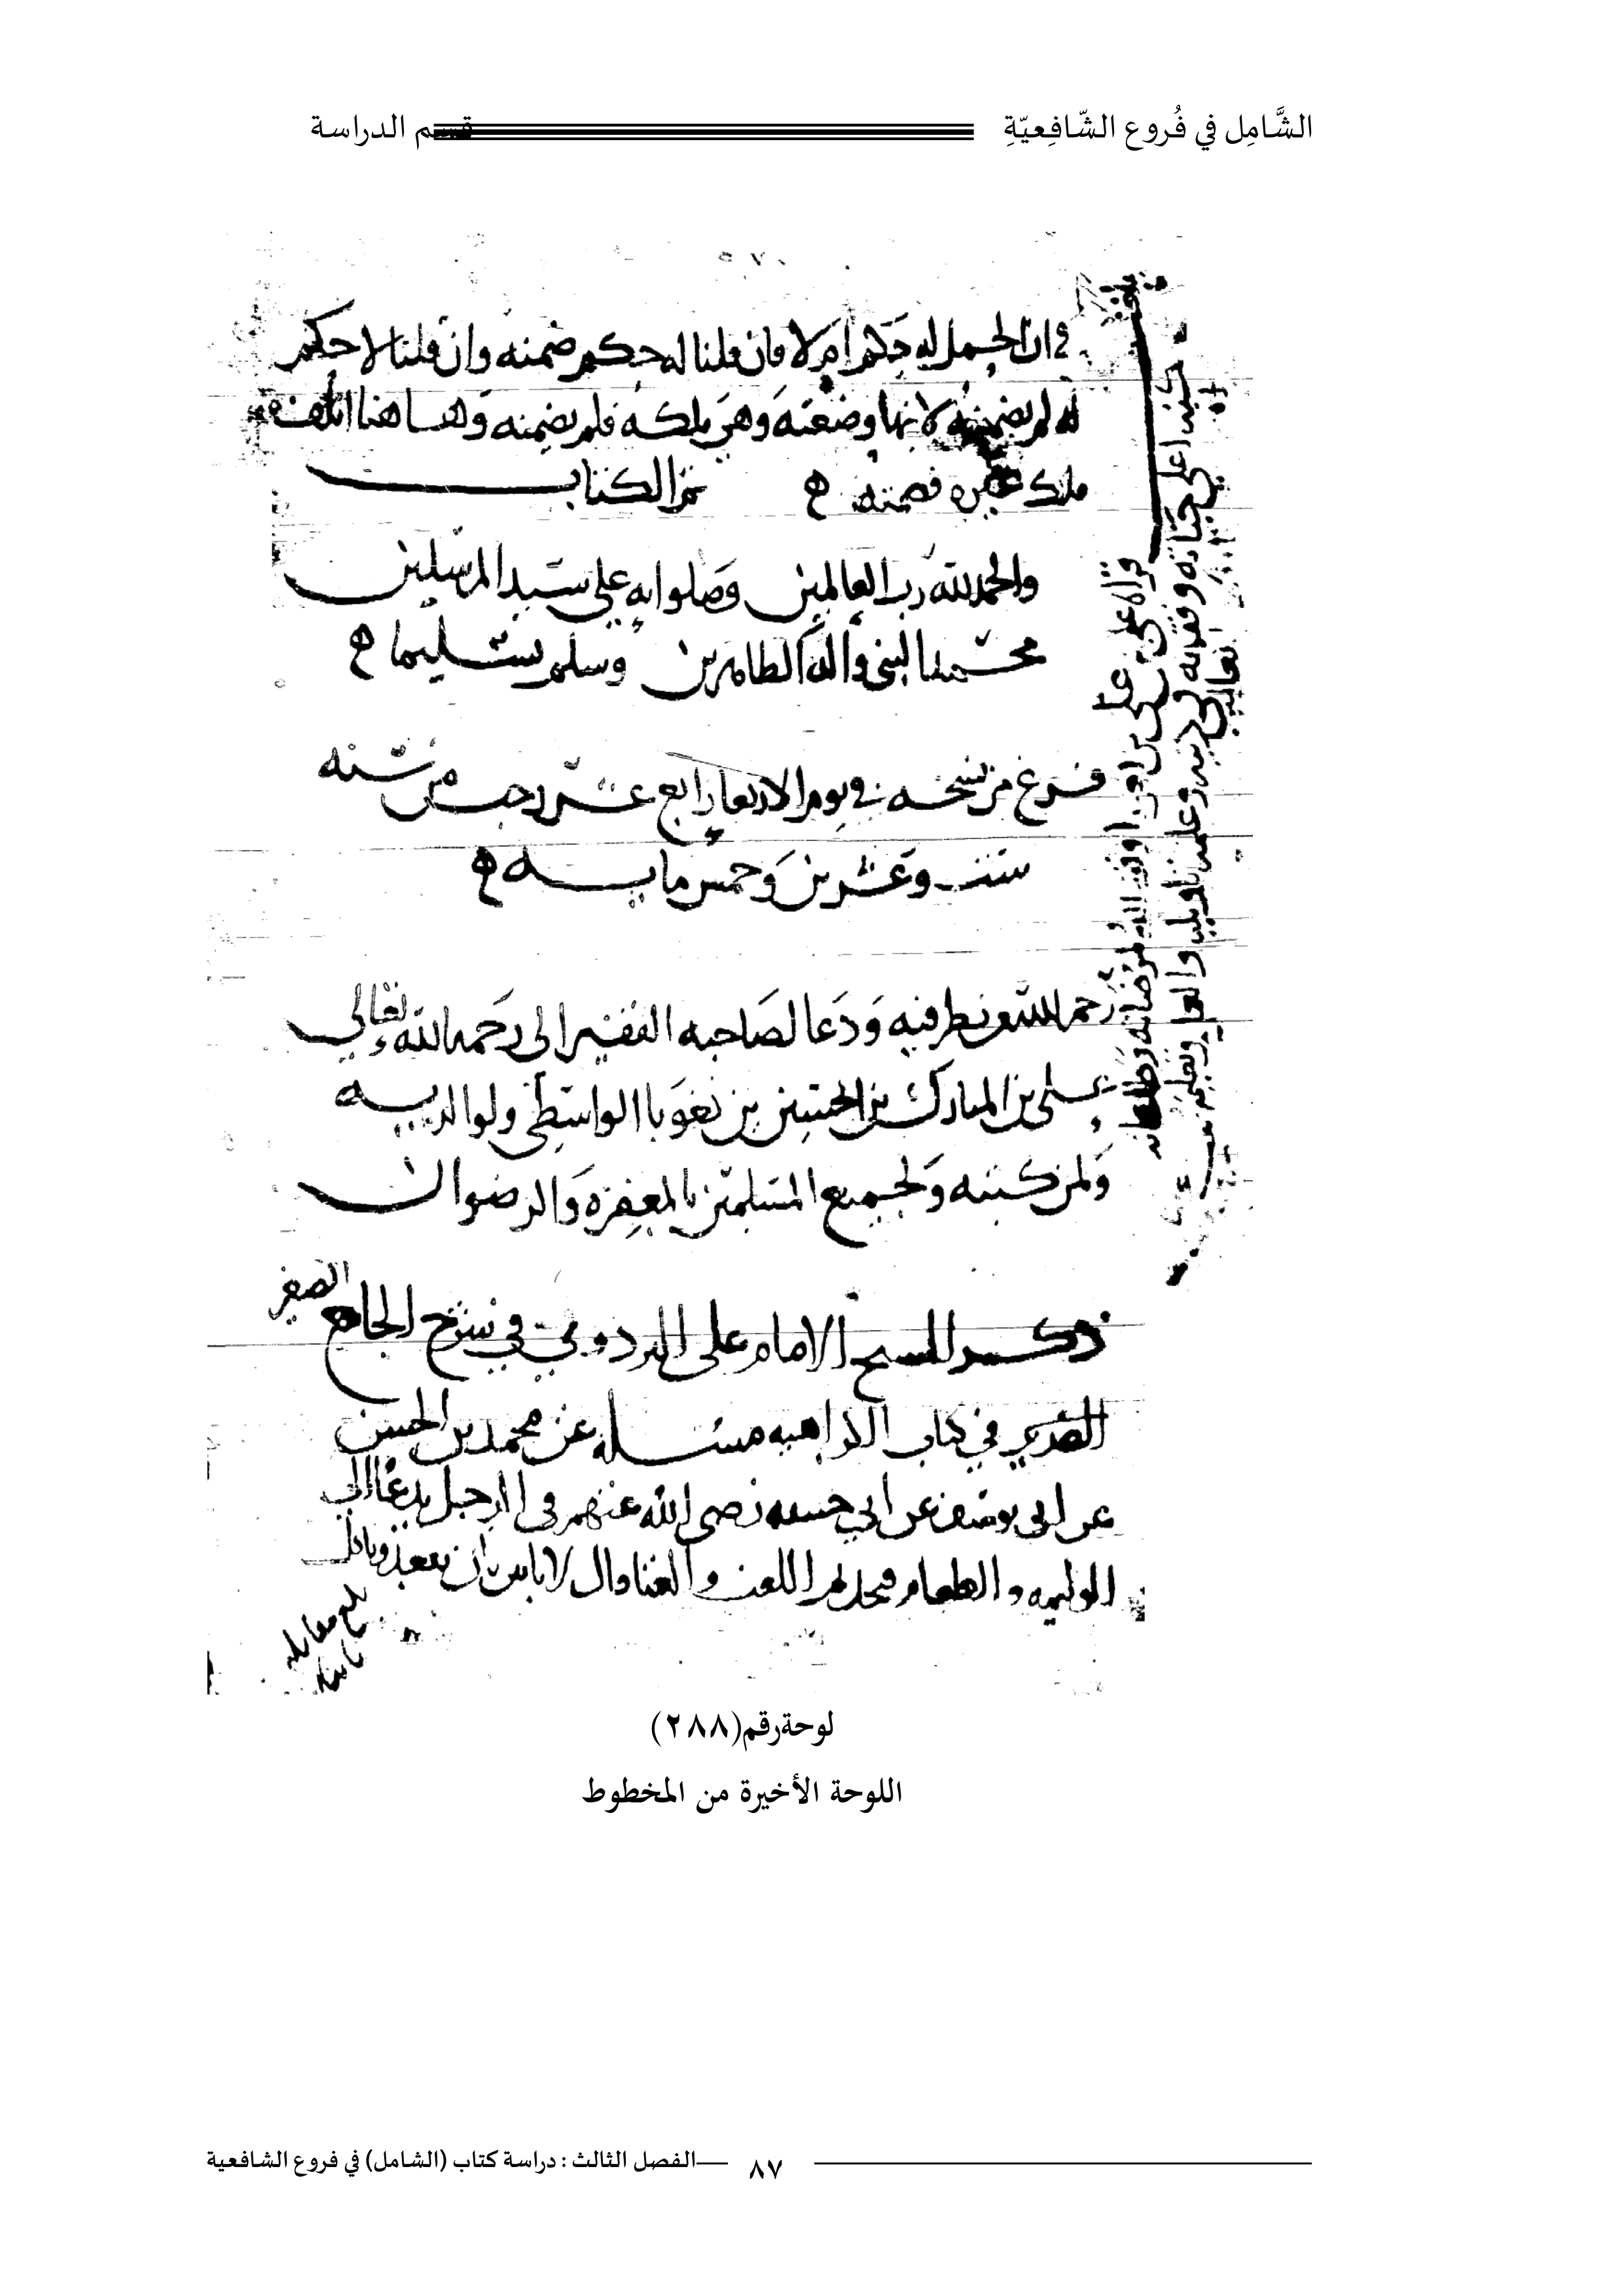 الشَّامِل في فُروع الشّافِعيّةِ
قسم الدراسة
في ان الحمل له حكم ام لا فان قلنا له حكم ضمنه وان قلنا لا حكم
له لم يضمنه لانها وضعته وهي ملكه فلم يضمنه وهاهنا اتلف
ملك غيره فضمنه تم الكتاب
والحمد لله رب العالمين وصلواته على سيد المرسلين
محمد النبي واله الطاهرين وسلم تسليما
فرغ من نسخه في يوم الاربعا رابع عشر رجب من سنه
ست وعشرين وخمس مايه
رحم الله من نظر فيه ودعا لصاحبه الفقير الى رحمه الله تعالى
علي بن المبارك بن الحسين بن نغوبا الواسطي ولوالديه
ولمن كتبه ولجميع المسلمين بالمغفره والرضوان
ذكر الشيخ الامام على البزدوي في شرح الجامع
الصغير
في كتاب الكراهيه مسله عن محمد بن الحسن
عن ابي يوسف عن ابي حنيفه رضي الله عنهم في الرجل يدعا الى
الوليمه و الطعام فيجد ثم اللعب و الغنا قال لا باس بان يقعد وياكل
بلغ مقابله
لوحةرقم(٢٨٨)
اللوحة الأخيرة من المخطوط
الفصل الثالث : دراسة كتاب (الشامل) في فروع الشافعية
٨٧